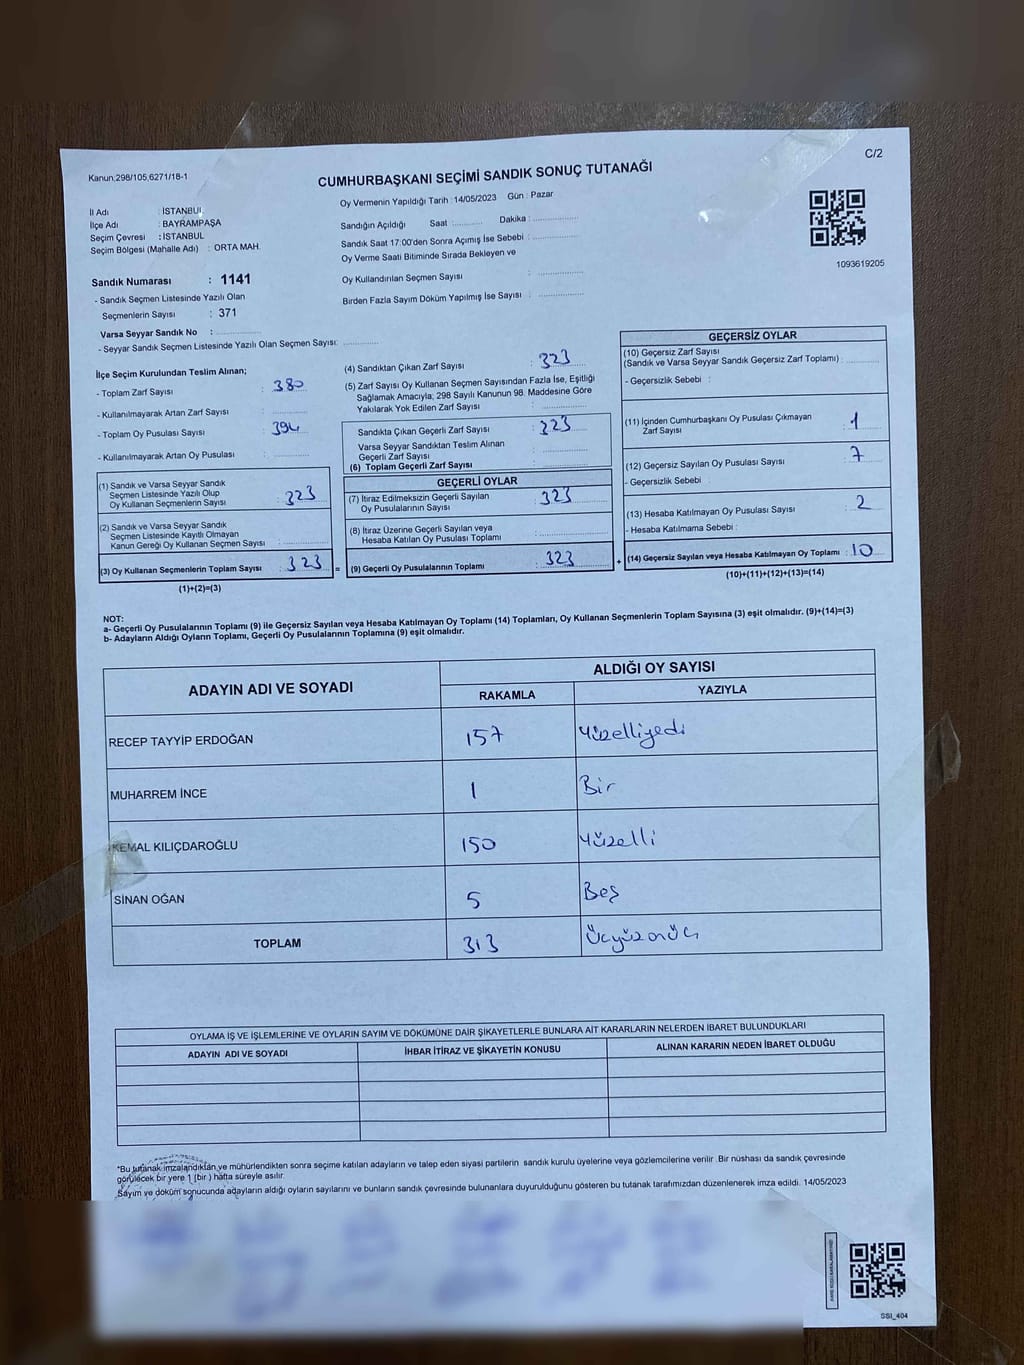 Kanun;298/105,6271/18-1
C/2
CUMHURBAŞKANI SEÇİMİ SANDIK SONUÇ TUTANAĞI
İl Adı : İSTANBUL
İlçe Adı : BAYRAMPAŞA
Seçim Çevresi : İSTANBUL
Seçim Bölgesi (Mahalle Adı) : ORTA MAH.
Oy Vermenin Yapıldığı Tarih : 14/05/2023 Gün : Pazar
Sandığın Açıldığı Saat : Dakika :
Sandık Saat 17:00'den Sonra Açımış İse Sebebi :
Oy Verme Saati Bitiminde Sırada Bekleyen ve
Oy Kullandırılan Seçmen Sayısı :
Birden Fazla Sayım Döküm Yapılmış İse Sayısı :
1093619205
Sandık Numarası : 1141
- Sandık Seçmen Listesinde Yazılı Olan
Seçmenlerin Sayısı : 371
Varsa Seyyar Sandık No :
- Seyyar Sandık Seçmen Listesinde Yazılı Olan Seçmen Sayısı:
İlçe Seçim Kurulundan Teslim Alınan;
- Toplam Zarf Sayısı : 380
- Kullanılmayarak Artan Zarf Sayısı :
- Toplam Oy Pusulası Sayısı : 394
- Kullanılmayarak Artan Oy Pusulası :
(1) Sandık ve Varsa Seyyar Sandık
Seçmen Listesinde Yazılı Olup
Oy Kullanan Seçmenlerin Sayısı : 323
(2) Sandık ve Varsa Seyyar Sandık
Seçmen Listesinde Kayıtlı Olmayan
Kanun Gereği Oy Kullanan Seçmen Sayısı :
(3) Oy Kullanan Seçmenlerin Toplam Sayısı : 323
(1)+(2)=(3)
(4) Sandıktan Çıkan Zarf Sayısı : 323
(5) Zarf Sayısı Oy Kullanan Seçmen Sayısından Fazla İse, Eşitliği
Sağlamak Amacıyla; 298 Sayılı Kanunun 98. Maddesine Göre
Yakılarak Yok Edilen Zarf Sayısı :
Sandıkta Çıkan Geçerli Zarf Sayısı : 323
Varsa Seyyar Sandıktan Teslim Alınan
Geçerli Zarf Sayısı :
(6) Toplam Geçerli Zarf Sayısı :
GEÇERLİ OYLAR
(7) İtiraz Edilmeksizin Geçerli Sayılan
Oy Pusulalarının Sayısı : 323
(8) İtiraz Üzerine Geçerli Sayılan veya
Hesaba Katılan Oy Pusulası Toplamı :
= (9) Geçerli Oy Pusulalarının Toplamı : 323
GEÇERSİZ OYLAR
(10) Geçersiz Zarf Sayısı
(Sandık ve Varsa Seyyar Sandık Geçersiz Zarf Toplamı) :
- Geçersizlik Sebebi :
(11) İçinden Cumhurbaşkanı Oy Pusulası Çıkmayan
Zarf Sayısı : 1
(12) Geçersiz Sayılan Oy Pusulası Sayısı : 7
- Geçersizlik Sebebi :
(13) Hesaba Katılmayan Oy Pusulası Sayısı : 2
- Hesaba Katılmama Sebebi :
+ (14) Geçersiz Sayılan veya Hesaba Katılmayan Oy Toplamı : 10
(10)+(11)+(12)+(13)=(14)
NOT:
a- Geçerli Oy Pusulalarının Toplamı (9) ile Geçersiz Sayılan veya Hesaba Katılmayan Oy Toplamı (14) Toplamları, Oy Kullanan Seçmenlerin Toplam Sayısına (3) eşit olmalıdır. (9)+(14)=(3)
b- Adayların Aldığı Oyların Toplamı, Geçerli Oy Pusulalarının Toplamına (9) eşit olmalıdır.
ADAYIN ADI VE SOYADI ALDIĞI OY SAYISI
RAKAMLA YAZIYLA
RECEP TAYYİP ERDOĞAN 157 Yüzelliyedi
MUHARREM İNCE 1 Bir
KEMAL KILIÇDAROĞLU 150 Yüzelli
SİNAN OĞAN 5 Beş
TOPLAM 313 Üçyüzonüç
OYLAMA İŞ VE İŞLEMLERİNE VE OYLARIN SAYIM VE DÖKÜMÜNE DAİR ŞİKAYETLERLE BUNLARA AİT KARARLARIN NELERDEN İBARET BULUNDUKLARI
ADAYIN ADI VE SOYADI İHBAR İTİRAZ VE ŞİKAYETİN KONUSU ALINAN KARARIN NEDEN İBARET OLDUĞU
*Bu tutanak imzalandıktan ve mühürlendikten sonra seçime katılan adayların ve talep eden siyasi partilerin sandık kurulu üyelerine veya gözlemcilerine verilir. Bir nüshası da sandık çevresinde
görülecek bir yere 1 (bir) hafta süreyle asılır.
Sayım ve döküm sonucunda adayların aldığı oyların sayılarını ve bunların sandık çevresinde bulunanlara duyurulduğunu gösteren bu tutanak tarafımızdan düzenlenerek imza edildi. 14/05/2023
SSI_404